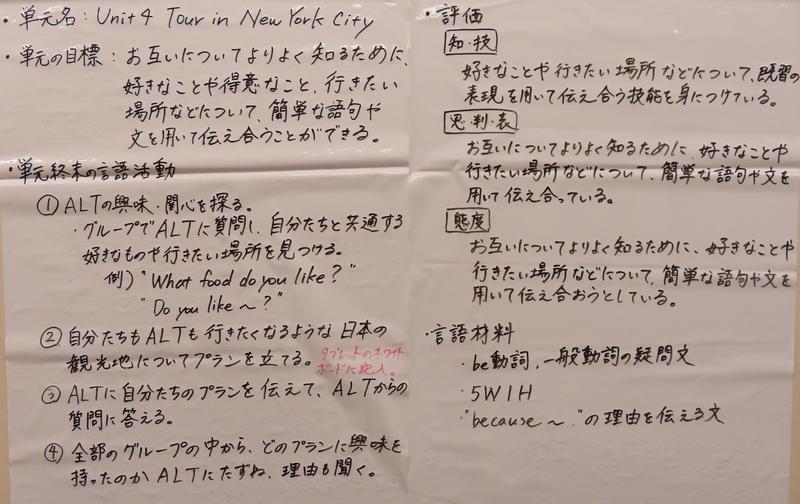 ・単元名：Unit 4 Tour in New York City
・単元の目標：お互いについてよりよく知るために、
好きなことや得意なこと、行きたい
場所などについて、簡単な語句や
文を用いて伝え合うことができる。
・単元終末の言語活動
①ALTの興味・関心を探る。
・グループでALTに質問し、自分たちと共通する
好きなものや行きたい場所を見つける。
例）"What food do you like?"
"Do you like ～?"
②自分たちもALTも行きたくなるような日本の
観光地についてプランを立てる。
タブレットのホワイト
ボードに記入。
③ALTに自分たちのプランを伝えて、ALTからの
質問に答える。
④全部のグループの中から、どのプランに興味を
持ったのかALTにたずね、理由も聞く。
・評価
知・技
好きなことや行きたい場所などについて、既習の
表現を用いて伝え合う技能を身につけている。
思・判・表
お互いについてよりよく知るために、好きなことや
行きたい場所などについて、簡単な語句や文を
用いて伝え合っている。
態度
お互いについてよりよく知るために、好きなことや
行きたい場所などについて、簡単な語句や文を
用いて伝え合おうとしている。
・言語材料
・be動詞、一般動詞の疑問文
・5W1H
・"because ～."の理由を伝える文